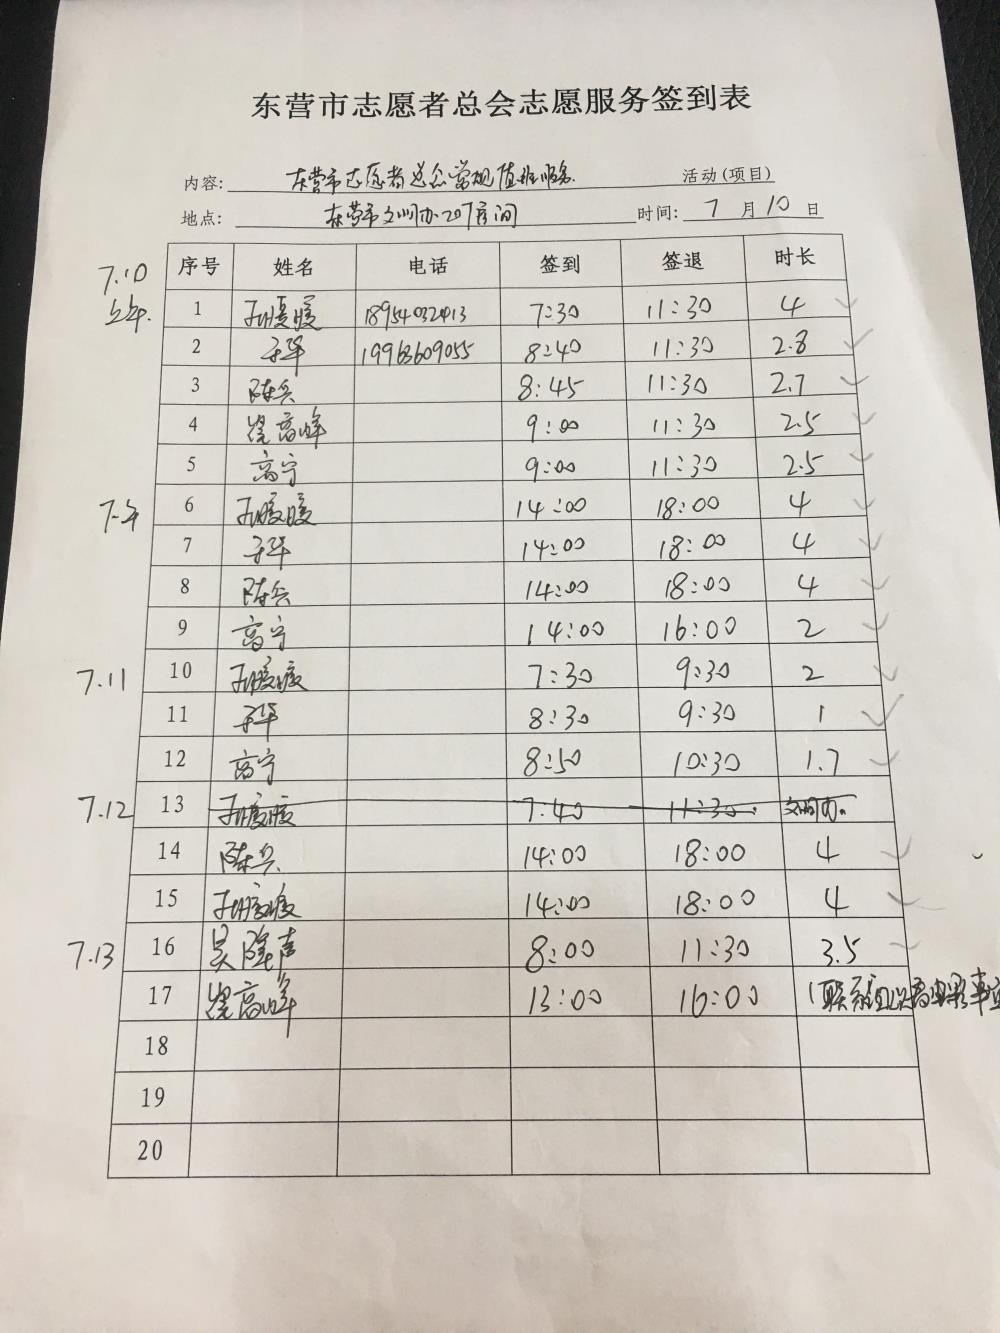 东营市志愿者总会志愿服务签到表
内容: 东营市志愿者总会常规值班服务 活动(项目)
地点: 东营市文明办207房间 时间: 7 月 10 日
序号 姓名 电话 签到 签退 时长
7.10 上午. 1 孙暖暖 7:30 11:30 4
2 于华 19963609055 8:40 11:30 2.8
3 陈兵 8:45 11:30 2.7
4 高峰 9:00 11:30 2.5
5 高宁 9:00 11:30 2.5
下午 6 孙暖暖 14:00 18:00 4
7 于华 14:00 18:00 4
8 陈兵 14:00 18:00 4
9 高宁 14:00 16:00 2
7.11 10 孙暖暖 7:30 9:30 2
11 于华 8:30 9:30 1
12 高宁 8:50 10:30 1.7
7.12 13 孙暖暖 7:40 11:30. 文明办.
14 陈兵 14:00 18:00 4
15 孙暖暖 14:00 18:00 4
7.13 16 吴隆声 8:00 11:30 3.5
17 高峰 13:00 16:00 联系
18
19
20